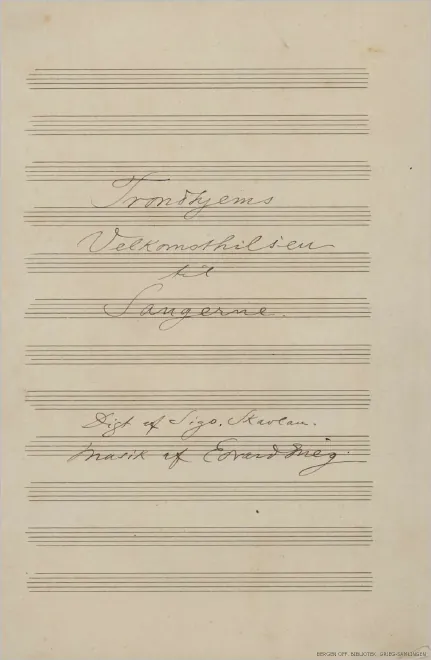 Trondhjems
Velkomsthilsen
til
Sangerne.
Digt af Sigv. Skavlan.
Musik af Edvard Grieg.
BERGEN OFF. BIBLIOTEK. GRIEG-SAMLINGEN